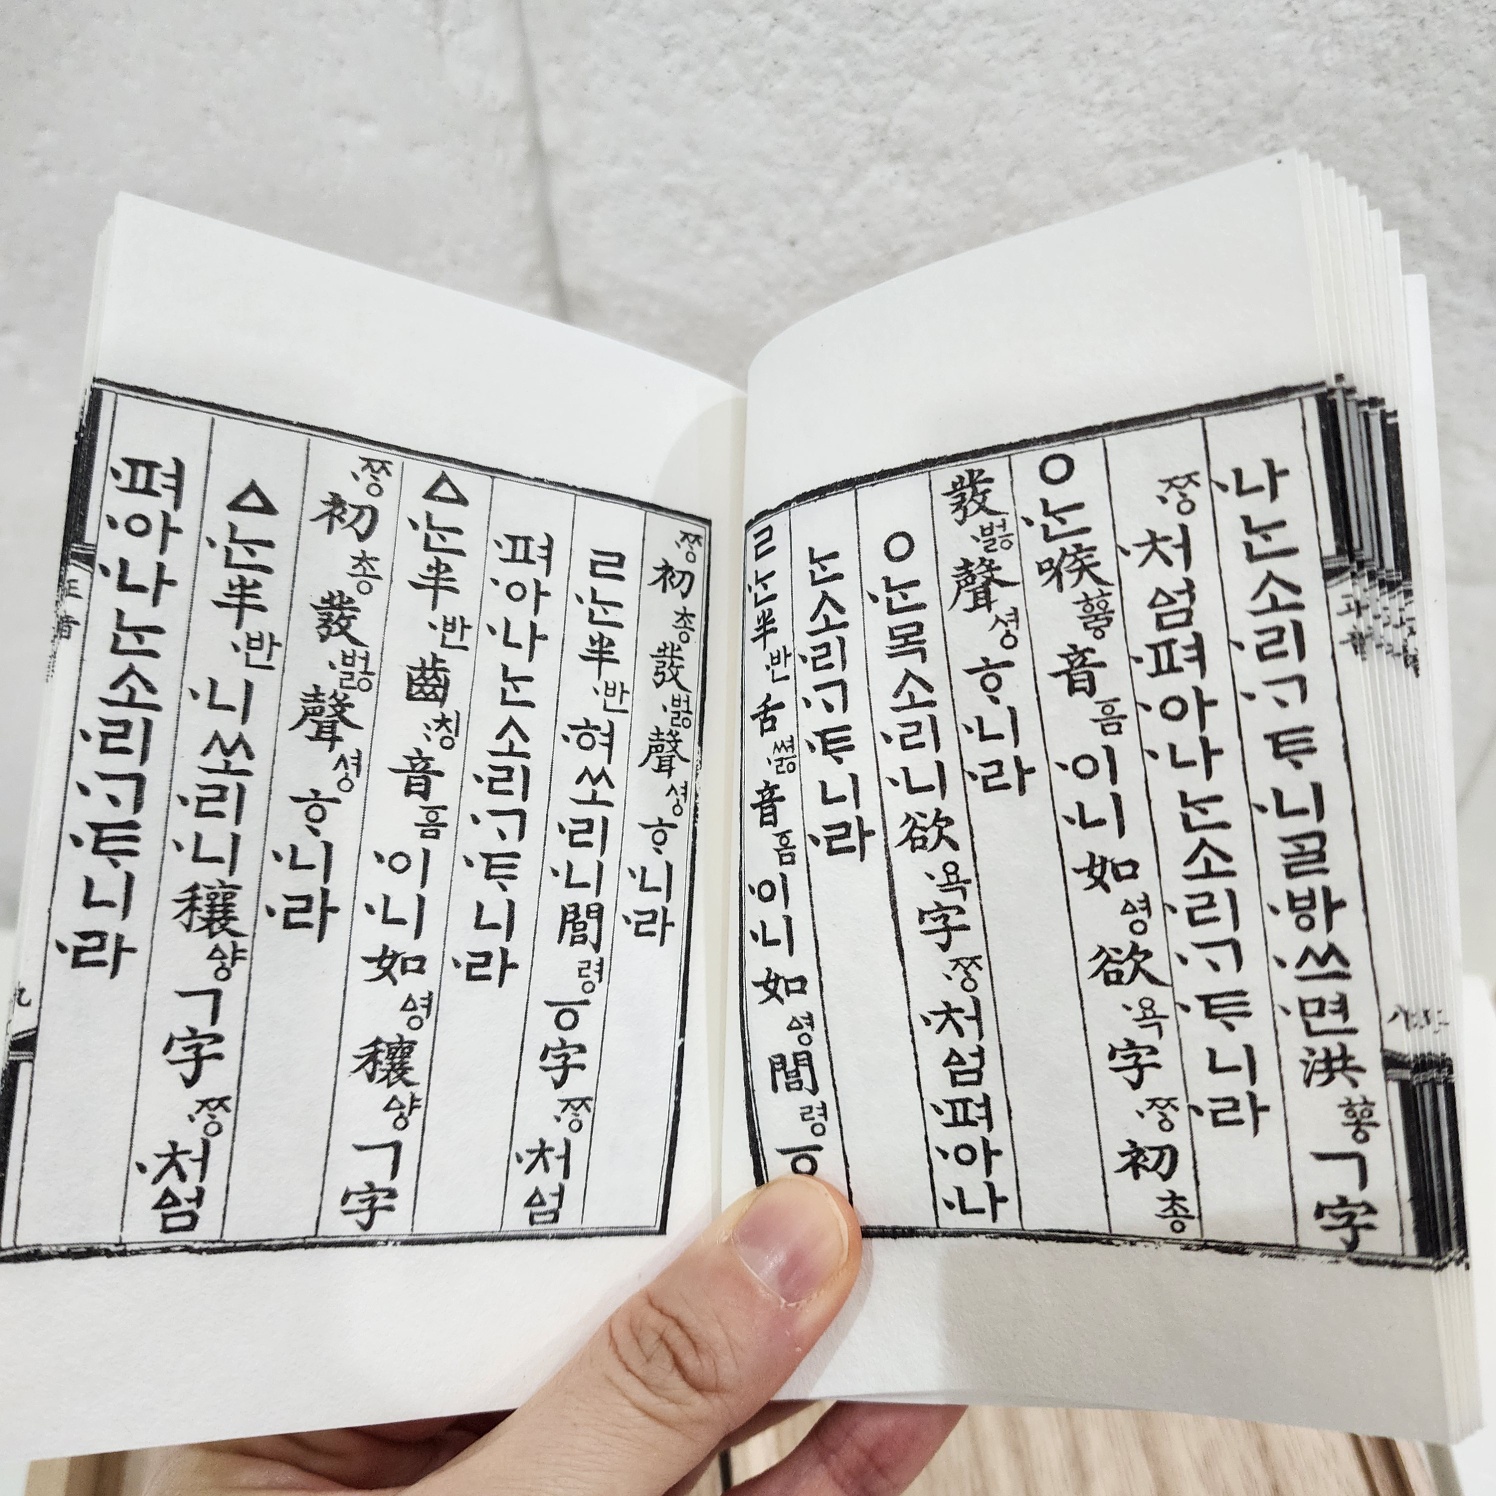 ·나ᄂᆞᆫ소·리·ᄀᆞᄐᆞ·니ᄀᆞᆯ·ᄫᅡ·쓰·면洪ᅘᅩᇰㄱ字
·ᄍᆞᆼ·처ᅀᅥᆷ·펴·아·나ᄂᆞᆫ소·리·ᄀᆞ·ᄐᆞ니·라
ㅇ·ᄂᆞᆫ喉ᅘᅮᇢ音ᅙᅳᆷ·이·니如ᅀᅧᆼ欲·욕字·ᄍᆞᆼ初총
發·벓聲셩ᄒᆞ·니·라
ㅇ·ᄂᆞᆫ목소·리·니欲·욕字·ᄍᆞᆼ·처ᅀᅥᆷ·펴·아·나
ᄂᆞᆫ소·리·ᄀᆞ·ᄐᆞ니·라
ㄹ·ᄂᆞᆫ半·반舌·쎯音ᅙᅳᆷ·이·니如ᅀᅧᆼ閭령ㆆ
·ᄍᆞᆼ初총發·벓聲셩ᄒᆞ·니·라
ㄹ·ᄂᆞᆫ半·반·혀쏘·리·니閭령ㆆ字·ᄍᆞᆼ·처ᅀᅥᆷ
·펴·아·나ᄂᆞᆫ소·리·ᄀᆞ·ᄐᆞ니·라
ㅿ·ᄂᆞᆫ半·반齒:칭音ᅙᅳᆷ·이·니如ᅀᅧᆼ穰ᅀᅣᇰㄱ字
·ᄍᆞᆼ初총發·벓聲셩ᄒᆞ·니·라
ㅿ·ᄂᆞᆫ半·반·니쏘·리·니穰ᅀᅣᇰㄱ字·ᄍᆞᆼ·처ᅀᅥᆷ
·펴·아·나ᄂᆞᆫ소·리·ᄀᆞ·ᄐᆞ니·라
正音
九